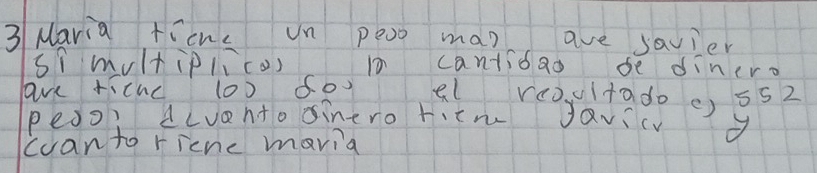 3 Maria tiene un peso mas que Javier
si multiplicas la cantidad de dinero
que tiene los dos el resultado es 552
pesos ¿cuanto dinero tiene Javier y
cuanto tiene maria